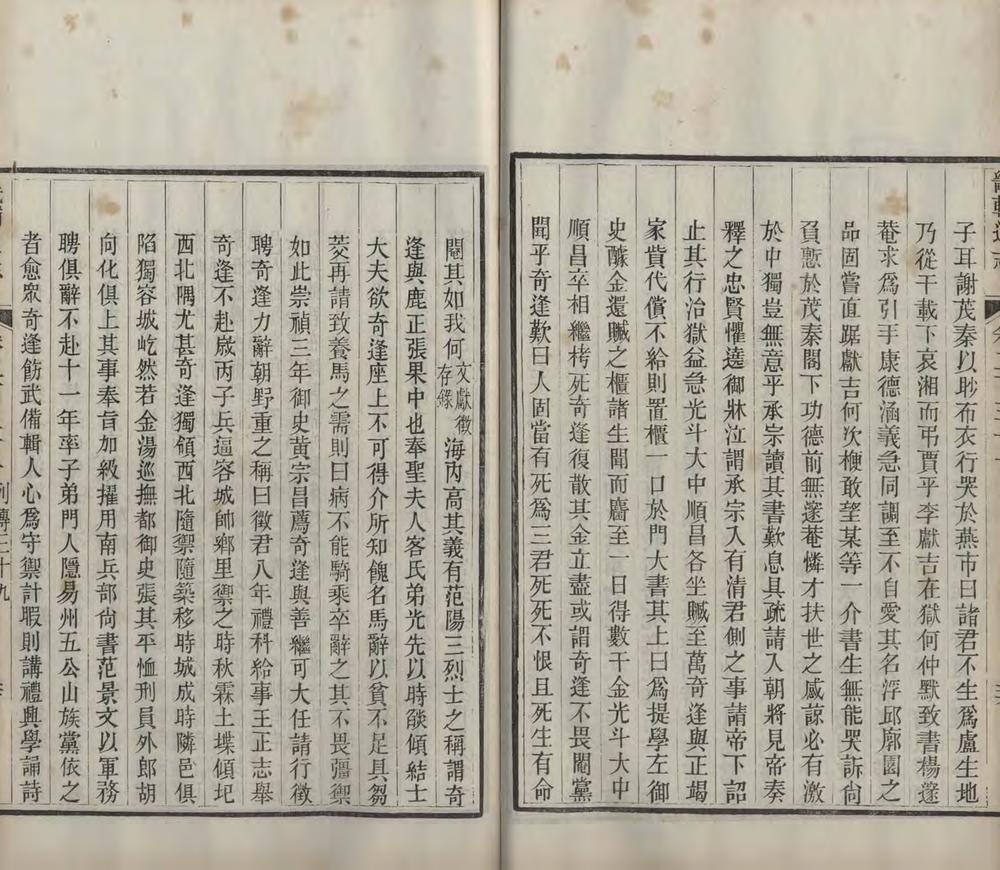 子耳謝茂秦以眇布衣行哭於燕市曰諸君不生爲盧生地
乃從千載下哀湘而弔賈乎李獻吉在獄何仲默致書楊邃
菴求爲引手康德涵義急同調至不自愛其名浮邱廓園之
品固嘗直踞獻吉何次楩敢望某等一介書生無能哭訴尙
負慙於茂秦閤下功德前無邃菴憐才扶世之感諒必有激
於中獨豈無意乎承宗讀其書歎息具疏請入朝將見帝奏
釋之忠賢懼遶御牀泣謂承宗入有清君側之事請帝下詔
止其行治獄益急光斗大中順昌各坐贓至萬奇逢與正竭
家貲代償不給則置櫃一口於門大書其上曰爲提學左御
史醵金還贓之櫃諸生聞而麕至一日得數千金光斗大中
順昌卒相繼栲死奇逢復散其金立盡或謂奇逢不畏閹黨
聞乎奇逢歎曰人固當有死爲三君死死不恨且死生有命
閹其如我何文獻徵存錄海內高其義有范陽三烈士之稱謂奇
逢與鹿正張果中也奉聖夫人客氏弟光先以時燄傾結士
大夫欲奇逢座上不可得介所知餽名馬辭以貧不足具芻
茭再請致養馬之需則曰病不能騎乘卒辭之其不畏彊禦
如此崇禎三年御史黃宗昌薦奇逢與善繼可大任請行徵
聘奇逢力辭朝野重之稱曰徵君八年禮科給事王正志舉
奇逢不赴歲丙子兵逼容城帥鄉里禦之時秋霖土堞傾圮
西北隅尤甚奇逢獨領西北隨禦隨築移時城成時隣邑俱
陷獨容城屹然若金湯巡撫都御史張其平恤刑員外郎胡
向化俱上其事奉旨加級擢用南兵部尙書范景文以軍務
聘俱辭不赴十一年率子弟門人隱易州五公山族黨依之
者愈眾奇逢飭武備輯人心爲守禦計暇則講禮興學誦詩
列傳三十九